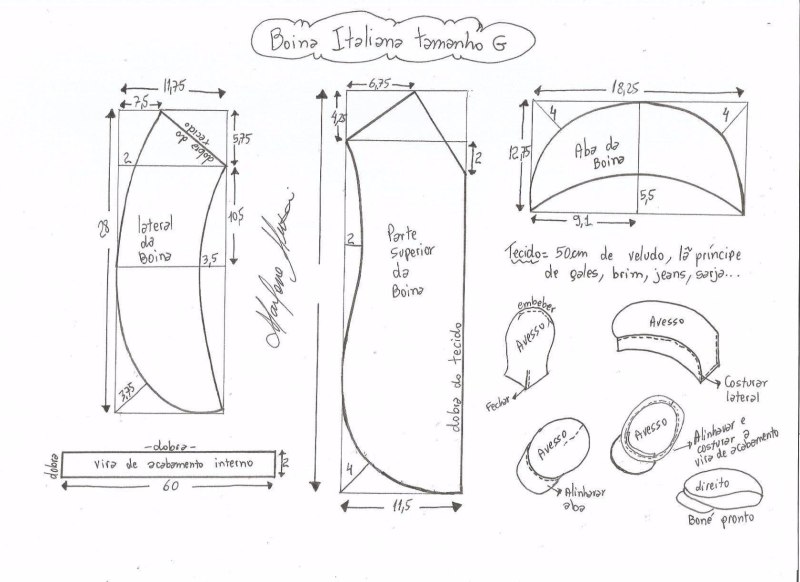 Boina Italiana tamanho G
11,75
7,5
dobra do
tecido
5,75
2
28
10,5
lateral
da
Boina
3,5
3,75
6,75
4,25
2
2
Parte
Superior
da
Boina
dobra do tecido
4
11,5
18,25
4
4
12,75
Aba da
Boina
5,5
9,1
Tecido= 50cm de veludo, lã príncipe
de gales, brim, jeans, sarja...
embeber
Avesso
Fechar
Avesso
Costurar
lateral
Avesso
Alinhavar
aba
Avesso
Alinhavar e
costurar a
vira de acabamento
direito
Boné pronto
-dobra-
dobra
vira de acabamento interno
2
60